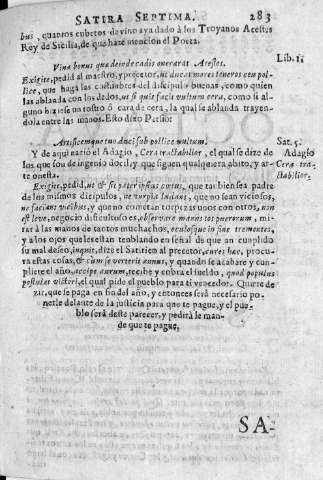 SATIRA SEPTIMA. 283
bus, quantos cubetos de vino aya dado à los Troyanos Acestes
Rey de Sicilia, de que haze mencion el Poeta.
Lib. 1.
Vina bonus quæ deinde cadis onerarat Acestes.
Exigite, pedid al maestro, y precetor, ut ducat mores teneros ceu pol-
lice, que haga las costumbres del discipulo buenas, como quien
las ablanda con los dedos, ut si quis facit vultum cera, como si al-
guno hiziesse un rostro ò cara de cera, la qual se ablanda trayen-
dola entre las manos. Esto dixo Persio:
Artificemque tuo ducit sub pollice vultum.
Sat. 5.
Y de aqui nació el Adagio, Cera tractabilior, el qual se dize de
Adagio
los que son de ingenio docil, y que siguen qualquera abito, y ar-
Cera tra-
te onesta.
ctabilior.
Exigite, pedid, ut & sit pater ipsius cœtus, que tambien sea padre
de los mismos dicipulos, ne turpia ludant, que no sean viciosos,
ne faciant vicibus, y que no cometan torpezas unos con otros, non
est leve, negocio dificultoso es, observare manus tot puerorum, mi-
rar à las manos de tantos muchachos, oculosque in fine trementes,
y à los ojos que les estan temblando en señal de que an cunplido
su mal deseo, inquit, dize el Satirico al precetor, cures hæc, procu-
ra estas cosas, & cum se verterit annus, y quando se acabare y cun-
pliere el año, accipe aurum, recibe y cobra el sueldo, quod populus
postulat victori, el qual pide el pueblo para ti vencedor. Quiere de
zir, que se paga en fin del año, y entonces serà necesario po-
nerle delante de la justicia para que te pague, y el pue-
blo serà deste parecer, y pedirà le man-
de que te pague,
SA-